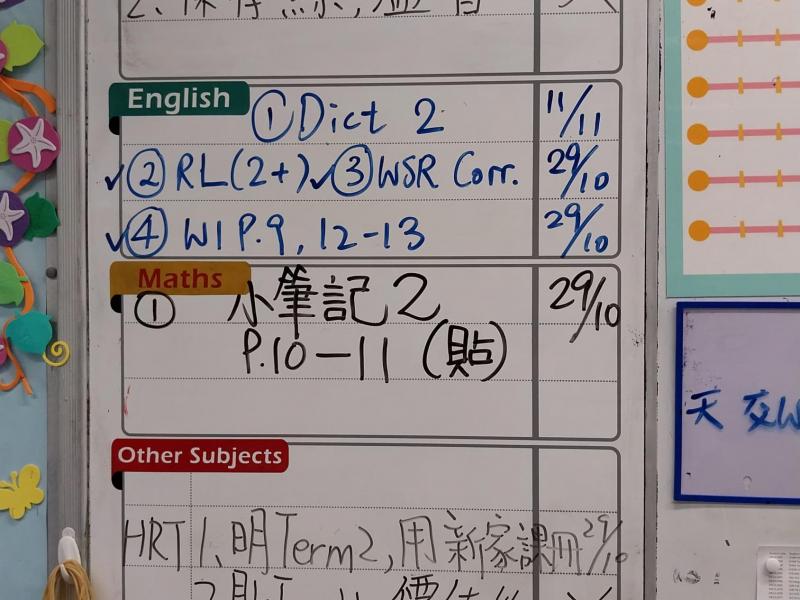 2、保存
English
① Dict 2 11/11
✓② RL(2+) ✓③ WSR Corr. 29/10
✓④ W1 P.9, 12-13 29/10
Maths
① 小筆記2 29/10
P.10-11 (貼)
Other Subjects
HRT 1、明Term2,用新家課冊 29/10
天 交W